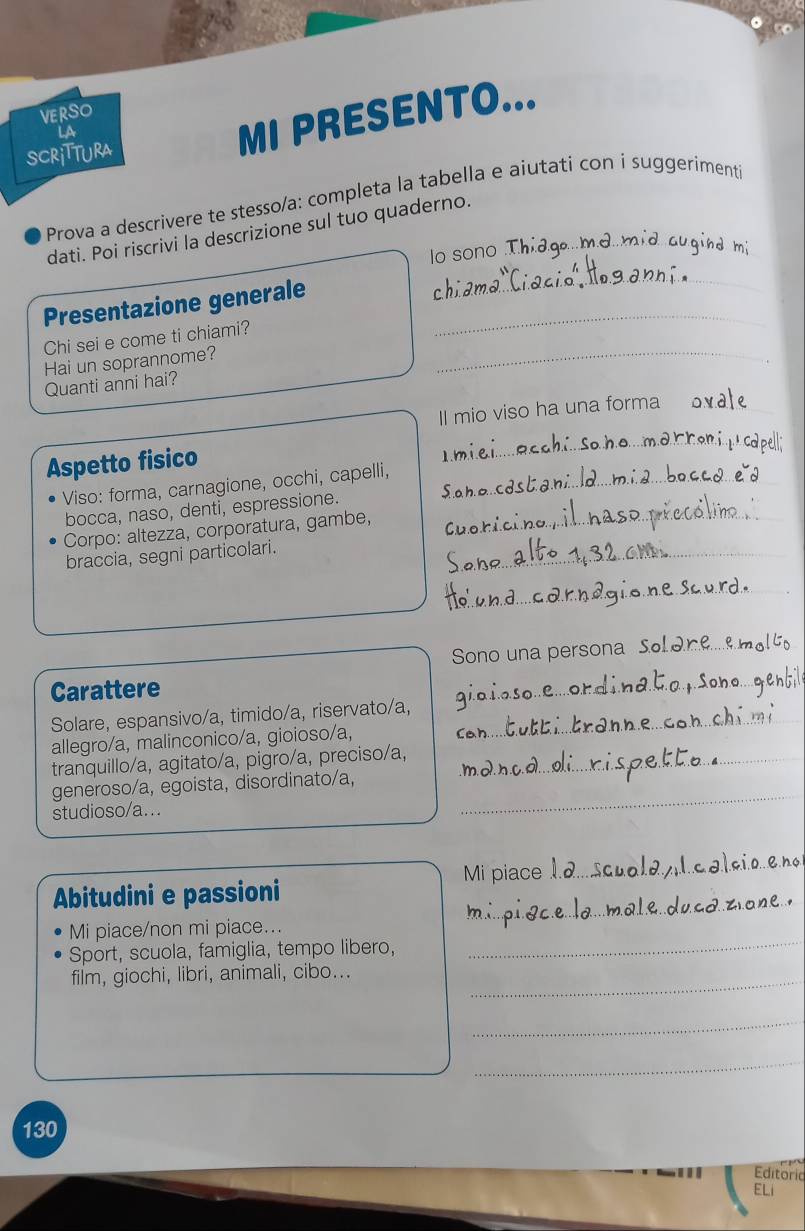 VERSO
LA
SCRITTURA
MI PRESENTO...
Prova a descrivere te stesso/a: completa la tabella e aiutati con i suggerimenti
dati. Poi riscrivi la descrizione sul tuo quaderno.
Presentazione generale
Chi sei e come ti chiami?
Hai un soprannome?
Quanti anni hai?
Io sono Thiago ma mia cugina mi
chiama "Ciacio". Ho 9 anni.
Aspetto fisico
• Viso: forma, carnagione, occhi, capelli,
bocca, naso, denti, espressione.
• Corpo: altezza, corporatura, gambe,
braccia, segni particolari.
Il mio viso ha una forma ovale
i miei occhi sono marroni, i capelli
sono castani la mia bocca è a
cuoricino, il naso piccolino.
Sono alto 1,32 cm.
Ho una carnagione scura.
Carattere
Solare, espansivo/a, timido/a, riservato/a,
allegro/a, malinconico/a, gioioso/a,
tranquillo/a, agitato/a, pigro/a, preciso/a,
generoso/a, egoista, disordinato/a,
studioso/a...
Sono una persona solare e molto
gioioso e ordinato, sono gentile
con tutti tranne con chi mi
manca di rispetto.
Abitudini e passioni
• Mi piace/non mi piace...
• Sport, scuola, famiglia, tempo libero,
film, giochi, libri, animali, cibo...
Mi piace la scuola, il calcio e no
mi piace la male ducazione.
130
ELi